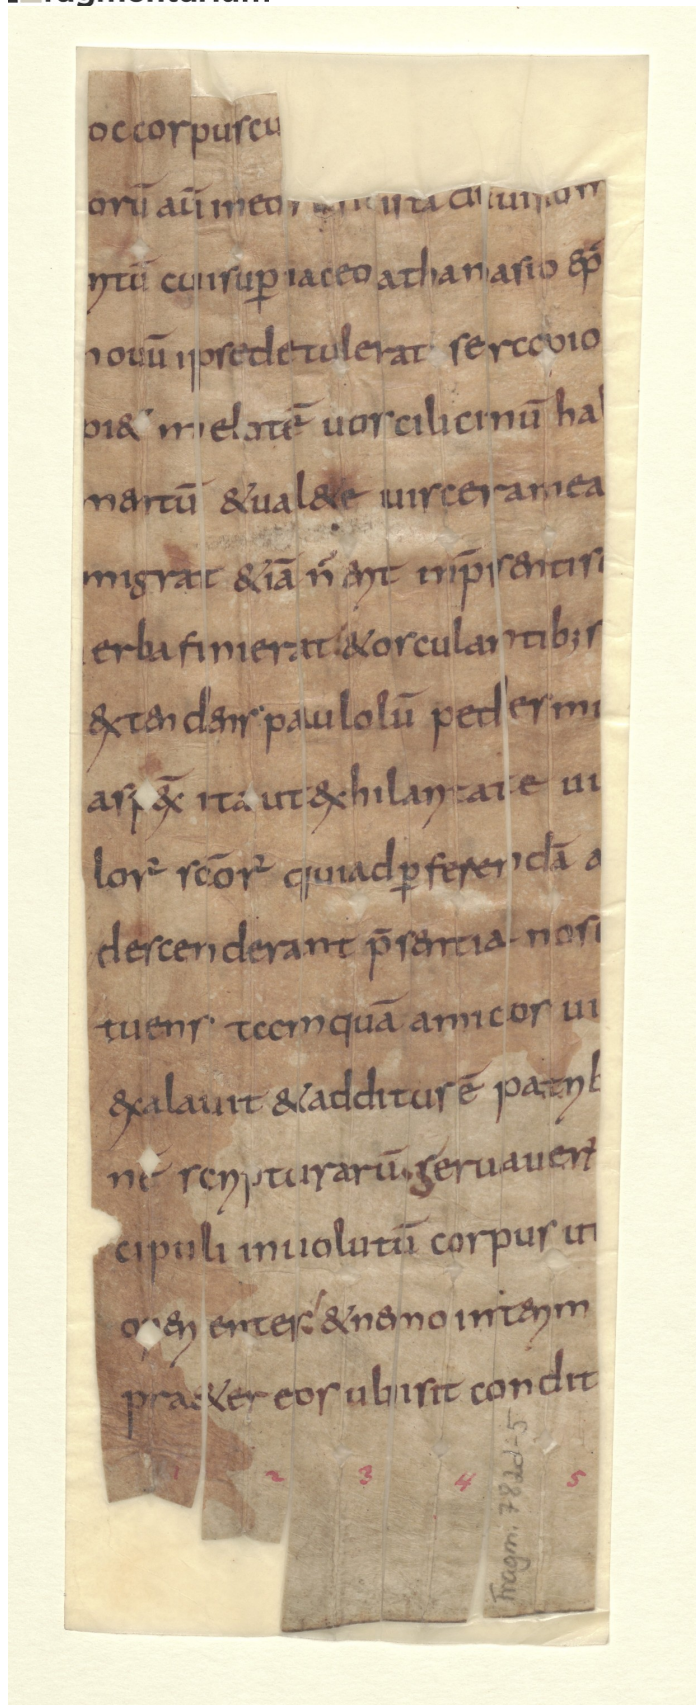 oc corpuscu
orū aūt meor
ntū cui sup iaceo athanasio ep̄
nouū ipse detulerat
uos cilicinū hab
mentū & ualete uiscera mea
migrat & iā ñ erit in p̄sentis
erba finierat & osculantibꝫ s
extendens paulolū pedes mi
ita ut ex hilaritate
lorꝛ sc̄orꝛ qui ad pferendā a
descenderant p̄sentia nos
tuens tccmquā amicos ui
exalauit & additus ē patrib
ne scripturarū seruauert
cipuli inuolutū corpus iti
operientes & nemo interim
praeter eos ubi sit condit
1 2 3 4 5
Fragm. 782d-5